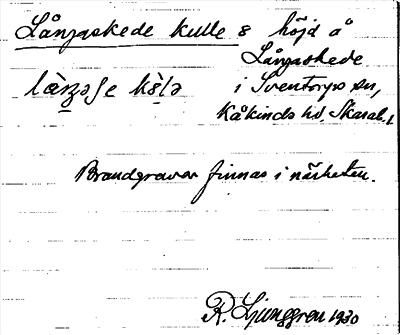 Långaskede kulle 8 höjd å
Långaskede
i Sventorps sn,
Kåkinds hd Skarab. l
Brandgravar finnas i närheten.
R. Ljunggren 1930